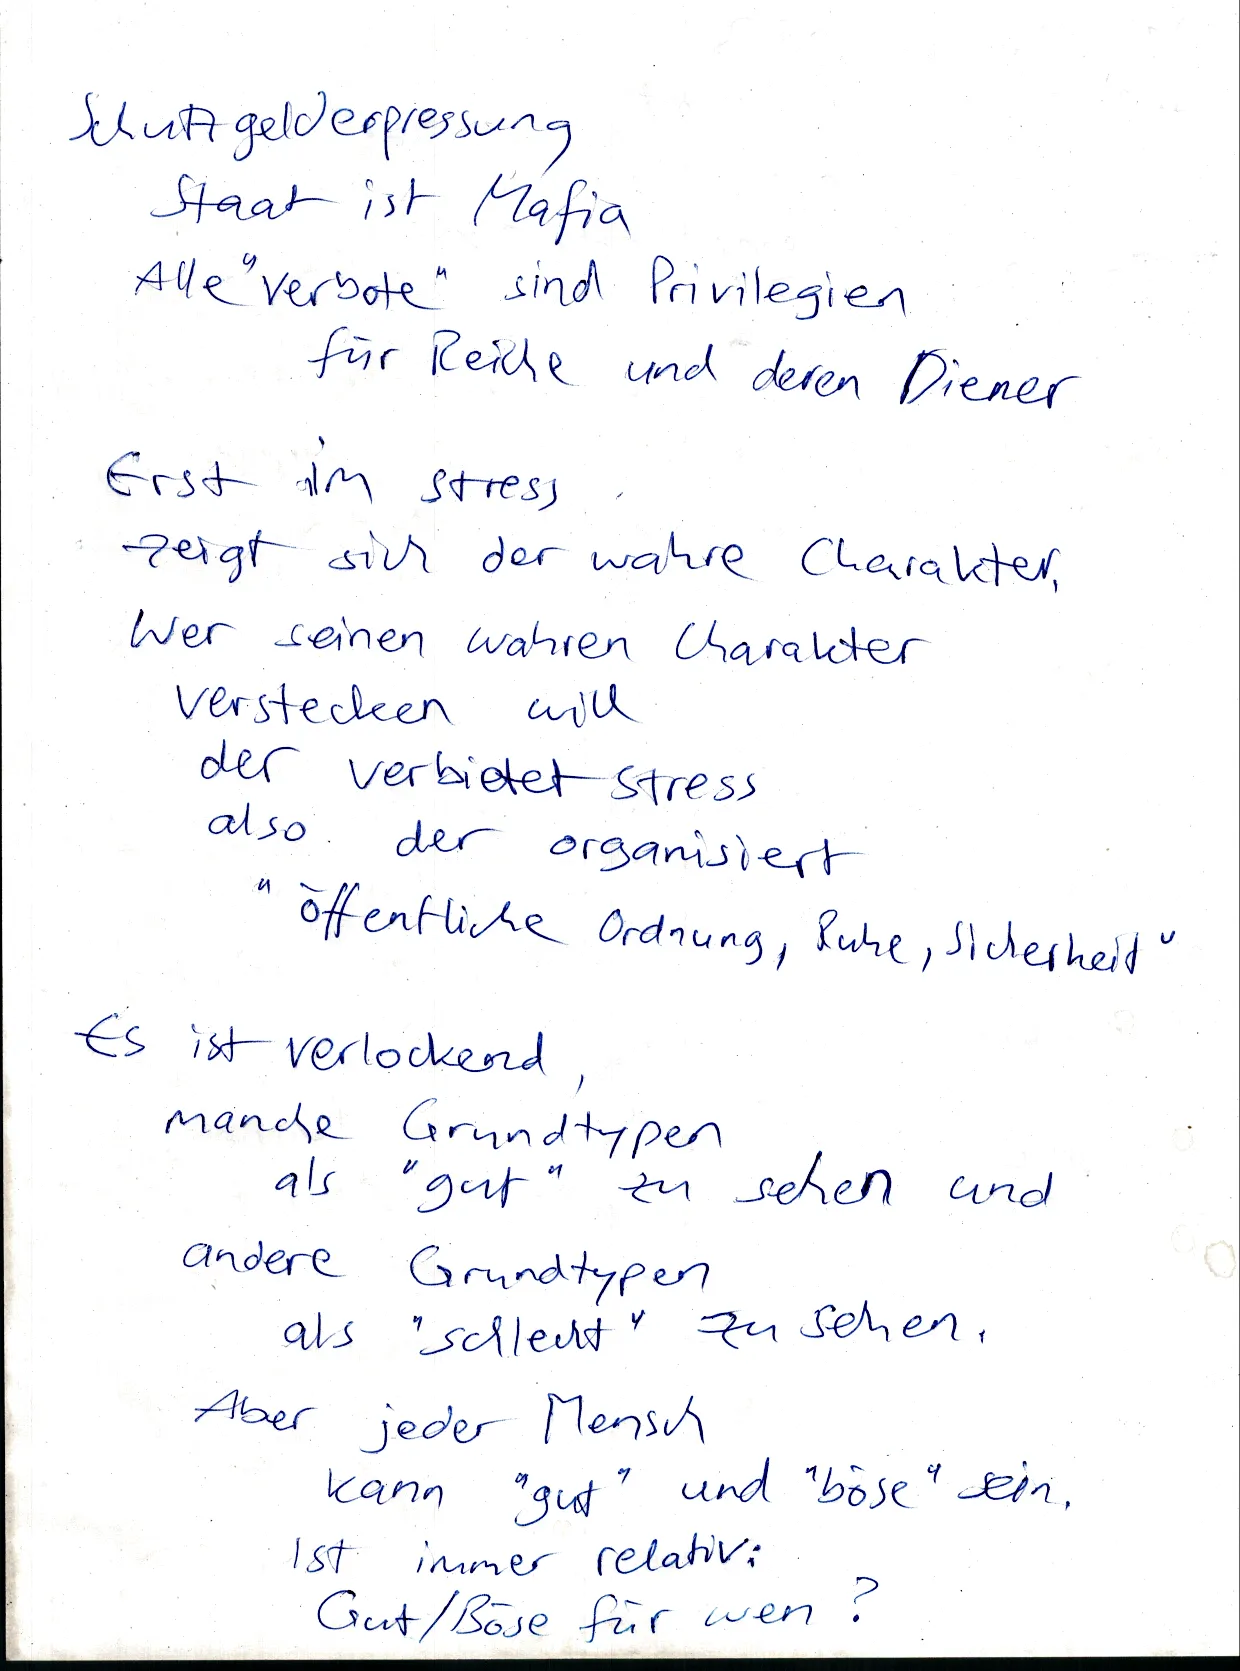 Schutzgelderpressung
Staat ist Mafia
Alle "Verbote" sind Privilegien
für Reiche und deren Diener
Erst im Stress
zeigt sich der wahre Charakter.
Wer seinen wahren Charakter
verstecken will
der verbietet Stress
also der organisiert
"öffentliche Ordnung, Ruhe, Sicherheit"
Es ist verlockend,
manche Grundtypen
als "gut" zu sehen und
andere Grundtypen
als "schlecht" zu sehen.
Aber jeder Mensch
kann "gut" und "böse" sein.
Ist immer relativ:
Gut/Böse für wen?